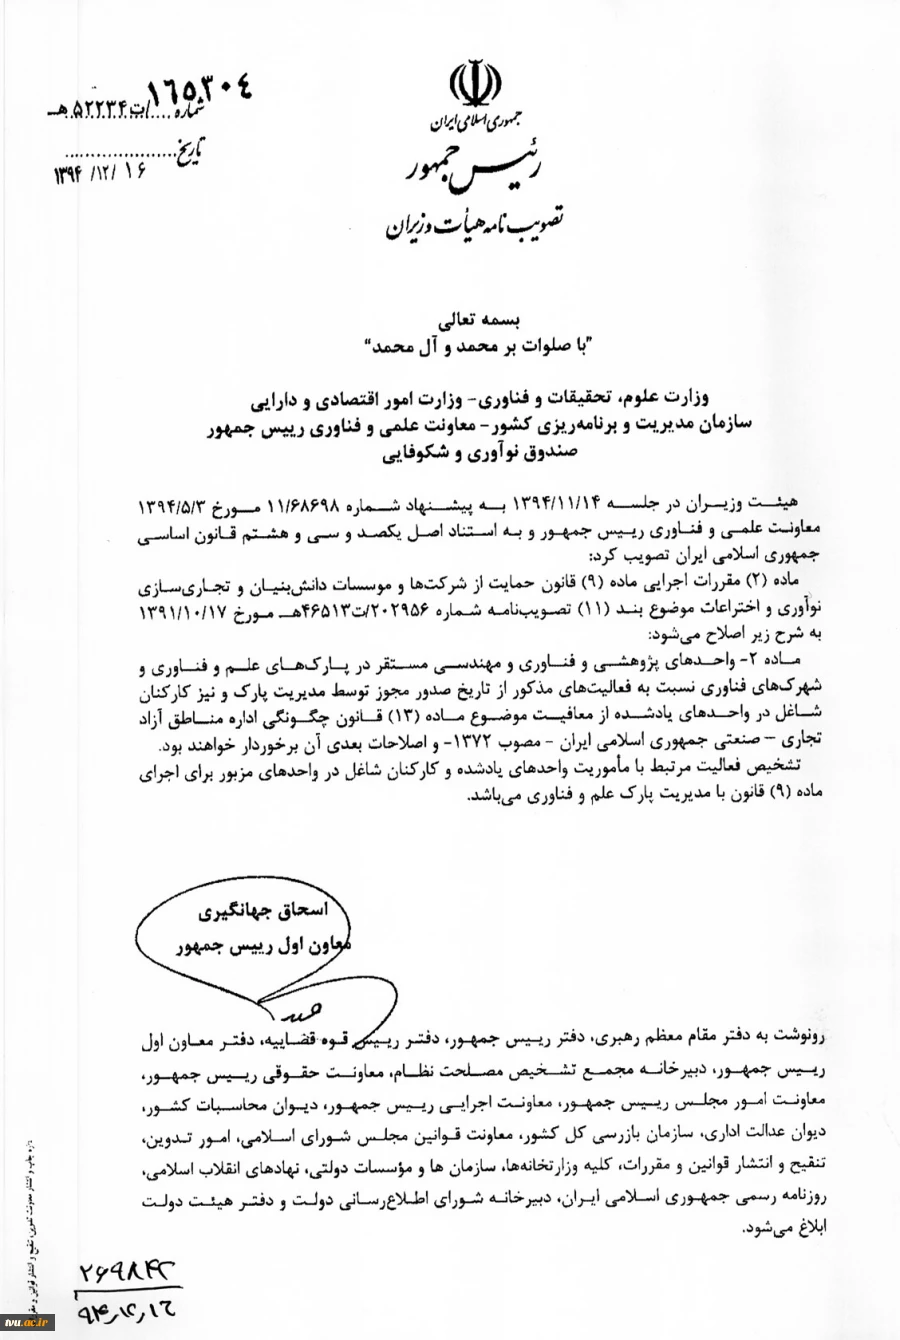 جمهوری اسلامی ایران
رئیس جمهور
تصویب نامه هیأت وزیران
۱۶۵۳۰۴
شماره ....../ت۵۲۲۳۴هـ
تاریخ ....................
۱۳۹۴/۱۲/۱۶
بسمه تعالی
"با صلوات بر محمد و آل محمد"
وزارت علوم، تحقیقات و فناوری- وزارت امور اقتصادی و دارایی
سازمان مدیریت و برنامه‌ریزی کشور- معاونت علمی و فناوری رییس جمهور
صندوق نوآوری و شکوفایی
هیئت وزیران در جلسه ۱۳۹۴/۱۱/۱۴ به پیشنهاد شماره ۱۱/۶۸۶۹۸ مورخ ۱۳۹۴/۵/۳
معاونت علمی و فناوری رییس جمهور و به استناد اصل یکصد و سی و هشتم قانون اساسی
جمهوری اسلامی ایران تصویب کرد:
ماده (۲) مقررات اجرایی ماده (۹) قانون حمایت از شرکت‌ها و موسسات دانش‌بنیان و تجاری‌سازی
نوآوری و اختراعات موضوع بند (۱۱) تصویب‌نامه شماره ۲۰۲۹۵۶/ت۴۶۵۱۳هـ مورخ ۱۳۹۱/۱۰/۱۷
به شرح زیر اصلاح می‌شود:
ماده ۲- واحدهای پژوهشی و فناوری و مهندسی مستقر در پارک‌های علم و فناوری و
شهرک‌های فناوری نسبت به فعالیت‌های مذکور از تاریخ صدور مجوز توسط مدیریت پارک و نیز کارکنان
شاغل در واحدهای یادشده از معافیت موضوع ماده (۱۳) قانون چگونگی اداره مناطق آزاد
تجاری – صنعتی جمهوری اسلامی ایران – مصوب ۱۳۷۲- و اصلاحات بعدی آن برخوردار خواهند بود.
تشخیص فعالیت مرتبط با مأموریت واحدهای یادشده و کارکنان شاغل در واحدهای مزبور برای اجرای
ماده (۹) قانون با مدیریت پارک علم و فناوری می‌باشد.
اسحاق جهانگیری
معاون اول رییس جمهور
رونوشت به دفتر مقام معظم رهبری، دفتر رییس جمهور، دفتر رییس قوه قضاییه، دفتر معاون اول
رییس جمهور، دبیرخانه مجمع تشخیص مصلحت نظام، معاونت حقوقی رییس جمهور،
معاونت امور مجلس رییس جمهور، معاونت اجرایی رییس جمهور، دیوان محاسبات کشور،
دیوان عدالت اداری، سازمان بازرسی کل کشور، معاونت قوانین مجلس شورای اسلامی، امور تدوین،
تنقیح و انتشار قوانین و مقررات، کلیه وزارتخانه‌ها، سازمان ها و مؤسسات دولتی، نهادهای انقلاب اسلامی،
روزنامه رسمی جمهوری اسلامی ایران، دبیرخانه شورای اطلاع‌رسانی دولت و دفتر هیئت دولت
ابلاغ می‌شود.
tvu.ac.ir